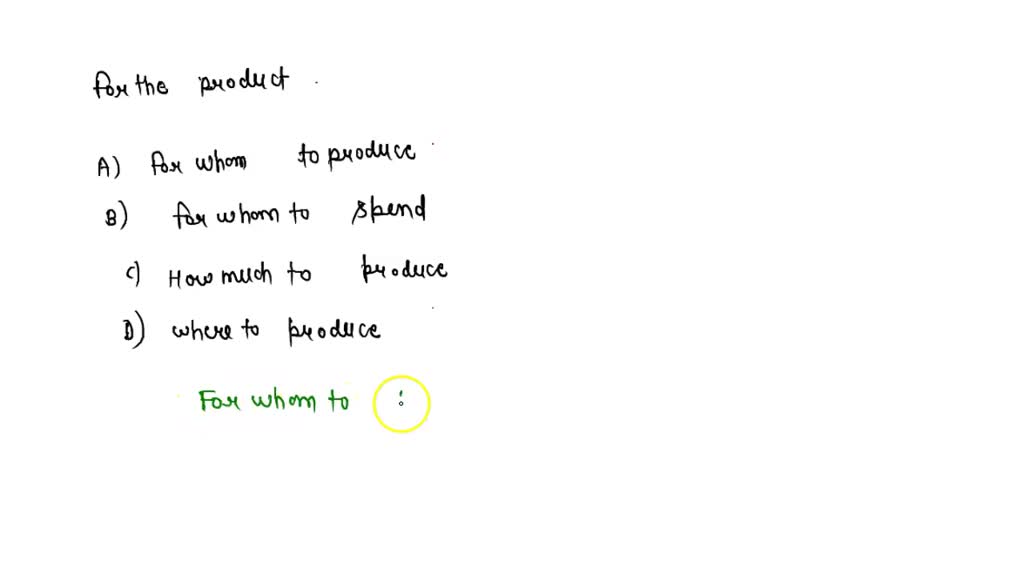 For the product
A) for whom to produce
B) for whom to spend
C) How much to produce
D) where to produce
For whom to